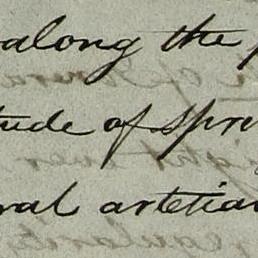 along the
tude of spri
ral artesian